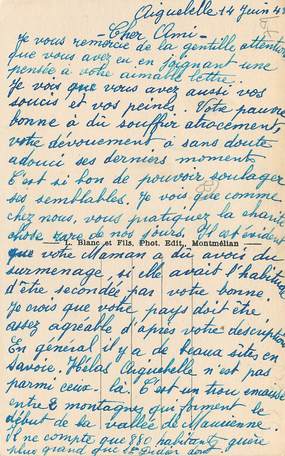 Aiguebelle 14 Juin 43
Cher Ami -
Je vous remercie de la gentille attention
que vous avez eu en joignant une
pensée à votre aimable lettre.
Je vois que vous avez aussi vos
soucis et vos peines. Votre pauvre
bonne à dû souffrir atrocement,
votre dévouement à sans doute
adouci ses derniers moment.
C'est si bon de pouvoir soulager
ses semblables. Je vois que comme
chez nous, vous pratiquez la charité
chose rare de nos jours. Il est évident
L. Blanc et Fils, Phot. Edit., Montmélian
que votre Maman a dû avoir du
surmenage, si elle avait l'habitude
d'être secondée par votre bonne.
Je crois que votre pays doit être
assez agréable d'après votre description
En général il y a de beaux sites en
Savoie. Hélas Aiguebelle n'est pas
parmi ceux-là. C'est un trou encaissé
entre 2 montagnes qui forment le
début de la vallée de Maurienne.
Il ne compte que 850 habitants guère
plus grand que St Didier dont